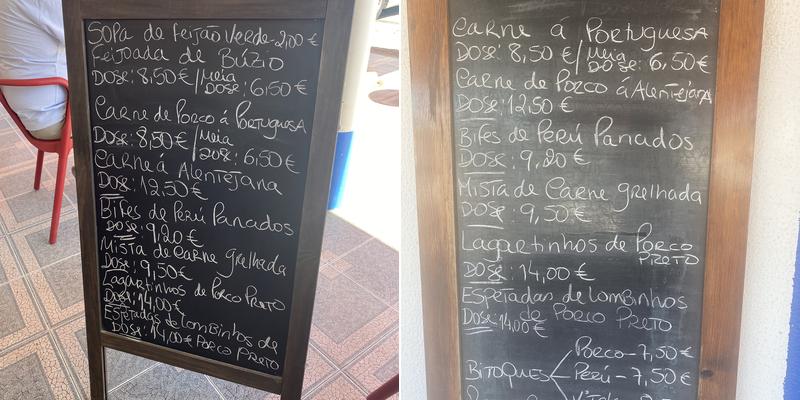 SOPA de feijão Verde - 2,00 €
Feijoada de Búzio
Dose: 8,50 € / Meia Dose: 6,50 €
Carne de Porco á Portuguesa
Dose: 8,50 € / Meia Dose: 6,50 €
Carne á Alentejana
Dose: 12,50 €
Bifes de Perú Panados
Dose: 9,20 €
Mista de Carne grelhada
Dose: 9,50 €
Lagartinhos de Porco Preto
Dose: 14,00 €
Espetadas de Lombinhos de
Dose: 14,00 € Porco Preto
Carne á Portuguesa
Dose: 8,50 € / Meia Dose: 6,50 €
Carne de Porco á Alentejana
Dose: 12,50 €
Bifes de Perú Panados
Dose: 9,20 €
Mista de Carne grelhada
Dose: 9,50 €
Lagartinhos de Porco Preto
Dose: 14,00 €
Espetadas de Lombinhos
de Porco Preto
Dose: 14,00 €
Porco - 7,50 €
Bitoques Perú - 7,50 €